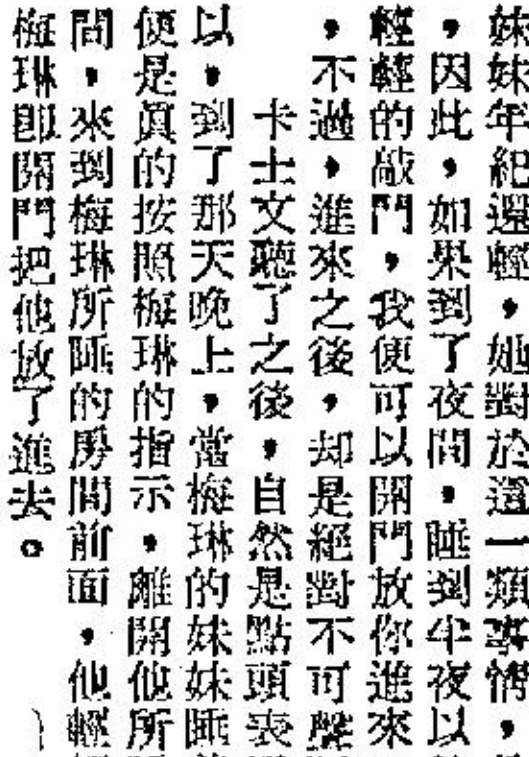 妹妹年紀還輕，她對於這一類事情，
，因此，如果到了夜間，睡到半夜以
輕輕的敲門，我便可以開門放你進來
，不過，進來之後，却是絕對不可聲
卡士文聽了之後，自然是點頭表
以，到了那天晚上，當梅琳的妹妹睡
便是真的按照梅琳的指示，離開他所
間，來到梅琳所睡的房間前面，他輕
梅琳即開門把他放了進去。